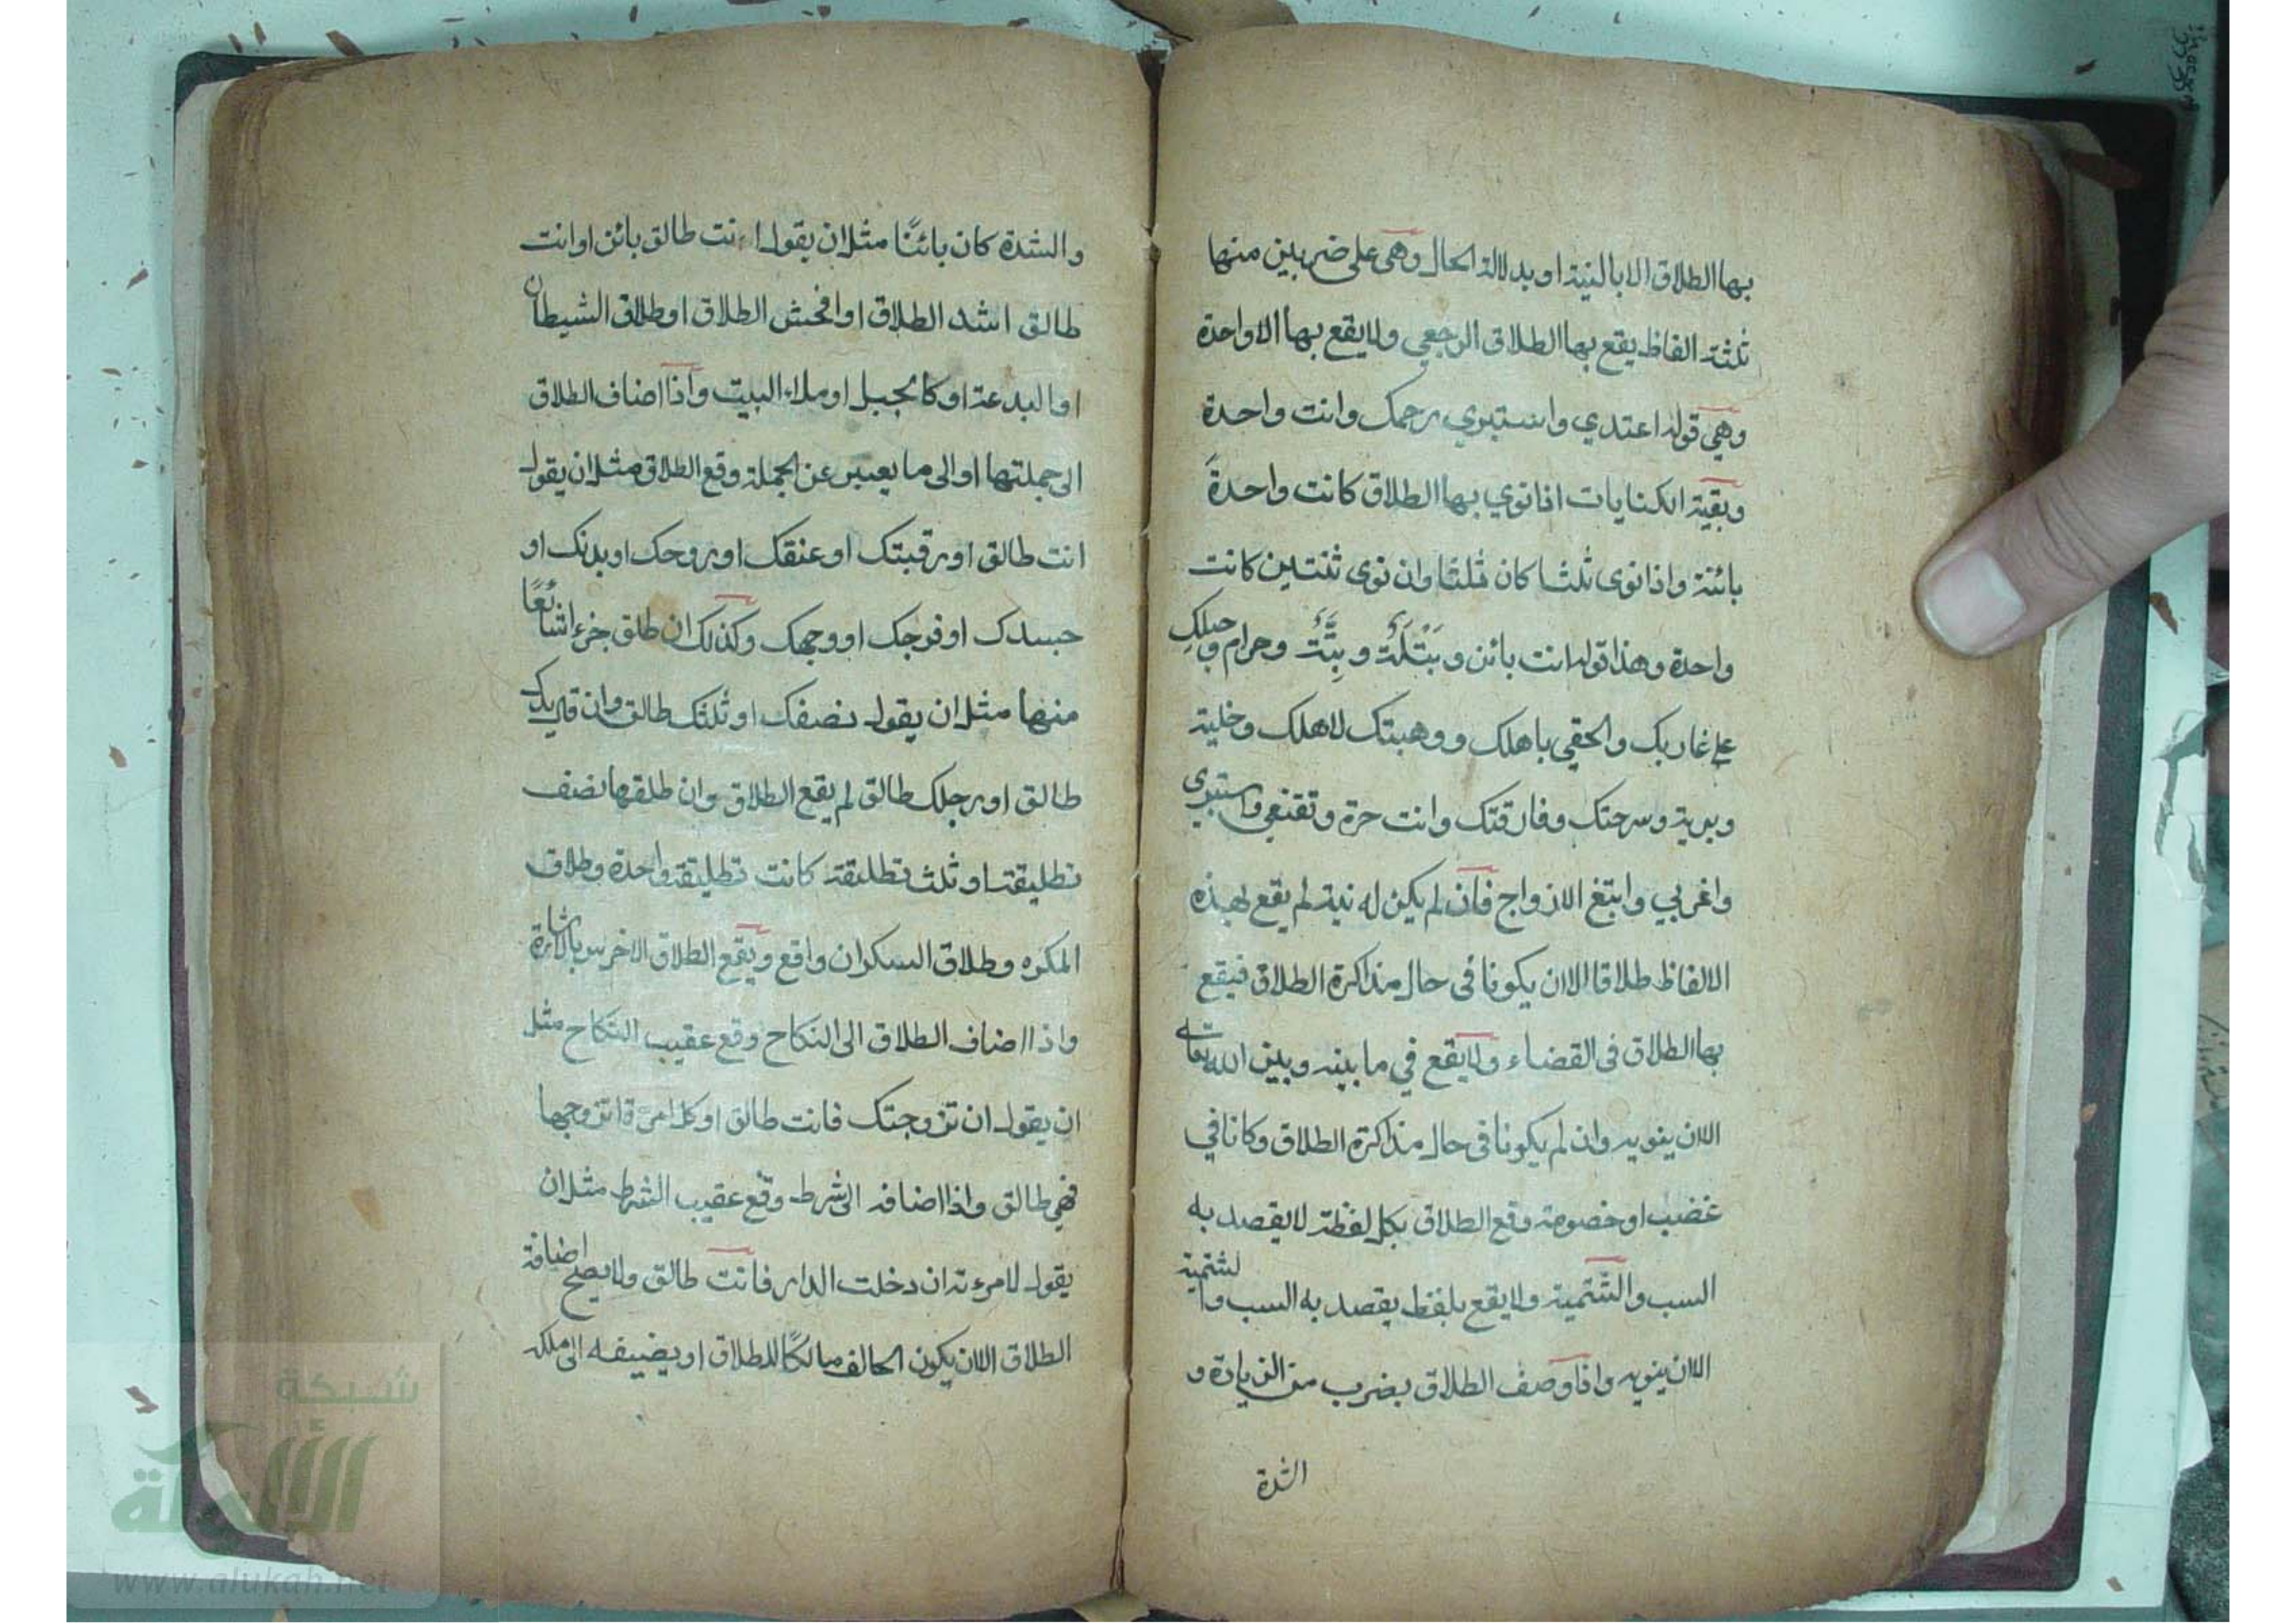 بها الطلاق الا بالنية او بدلالة الحال وهي على ضربين منها
ثلثة الفاظ يقع بها الطلاق الرجعي ولا يقع بها الا واحدة
وهي قوله اعتدي واستبري رحمك وانت واحدة
وبقية الكنايات اذا نوي بها الطلاق كانت واحدةً
بائنة واذا نوى ثلثا كان ثلثا وان نوى ثنتين كانت
واحدة وهذا قوله انت بائن وبَتْلَةٌ وبتَّتٌ وحرام وحبلكِ
على غاربك والحقي باهلك ووهبتك لاهلك وخلية
وبرية وسرحتك وفارقتك وانت حرة وتقنعي واستبري
واغربي وابتغ الازواج فان لم يكن له نية لم يقع بهذه
الالفاظ طلاقا الا ان يكونا في حال مذاكرة الطلاق فيقع
بها الطلاق فى القضاء ولا يقع في ما بينه وبين الله تعالى
الا ان ينويه وان لم يكونا فى حال مذاكرة الطلاق وكانا في
غضب او خصومة وقع الطلاق بكل لفظة لا يقصد به
السب والشتمية ولا يقع بلفظ يقصد به السب والشتمية
الا ان ينويه واذا وصف الطلاق بضرب من الزيادة و
الشدة
والشدة كان بائنًا مثل ان يقول انت طالق بائن او انت
طالق اشد الطلاق او افحش الطلاق او طلاق الشيطان
او البدعة او كالجبل او ملاء البيت واذا اضاف الطلاق
الى جملتها او الى ما يعبر عن الجملة وقع الطلاق مثل ان يقول
انت طالق او رقبتك او عنقك او روحك او بدنك او
جسدك او فرجك او وجهك وكذلك ان طلق جزء شائعًا
منها مثل ان يقول نصفك او ثلثك طالق وان قال يدك
طالق او رجلك طالق لم يقع الطلاق وان طلقها نصف
تطليقة او ثلث تطليقة كانت تطليقة واحدة وطلاق
المكره وطلاق السكران واقع ويقع الطلاق الاخرس بالاشارة
واذا اضاف الطلاق الى النكاح وقع عقيب النكاح مثل
ان يقول ان تزوجتك فانت طالق او كل امرءة اتزوجها
فهي طالق واذا اضافه الى شرط وقع عقيب الشرط مثل ان
يقول لامرءته ان دخلت الدار فانت طالق ولا يصلح اضافة
الطلاق الا ان يكون الحالف مالكًا للطلاق او يضيفه الى ملكه
شبكة
الألوكة
www.alukah.net